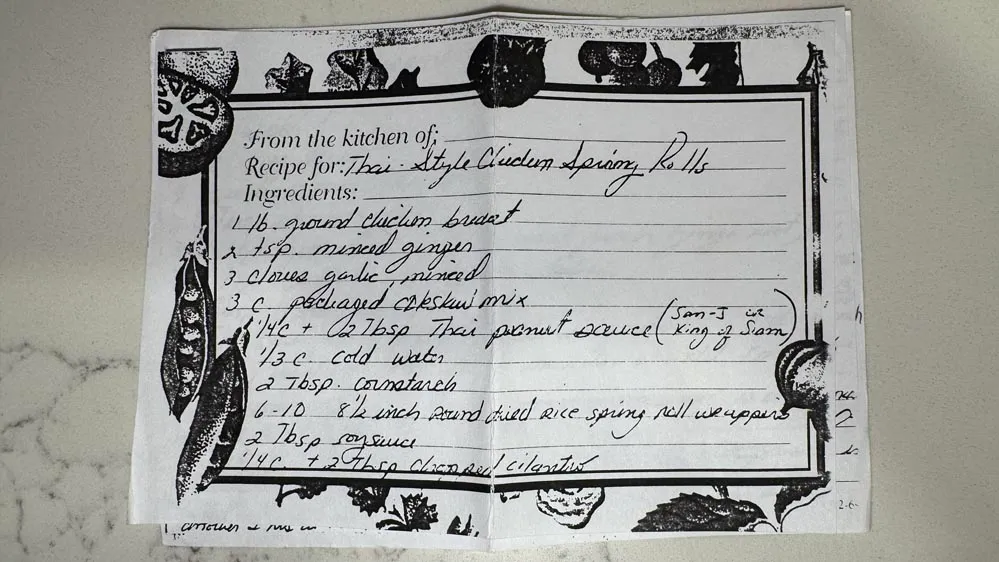 From the kitchen of:
Recipe for: Thai-Style Chicken Spring Rolls
Ingredients:
1 lb. ground chicken breast
2 tsp. minced ginger
3 cloves garlic, minced
3 c packaged coleslaw mix
1/4 c + 2 Tbsp Thai peanut sauce (San-J or King of Siam)
1/3 c. cold water
2 Tbsp. cornstarch
6-10 8 1/2 inch round dried rice spring roll wrappers
2 Tbsp soy sauce
1/4 c. + 2 Tbsp chopped cilantro